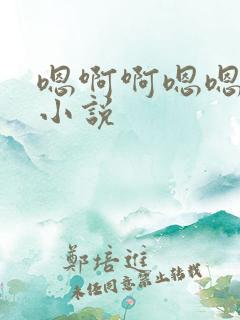 嗯啊啊嗯嗯
小说
鄭培進
未经同意禁止转载